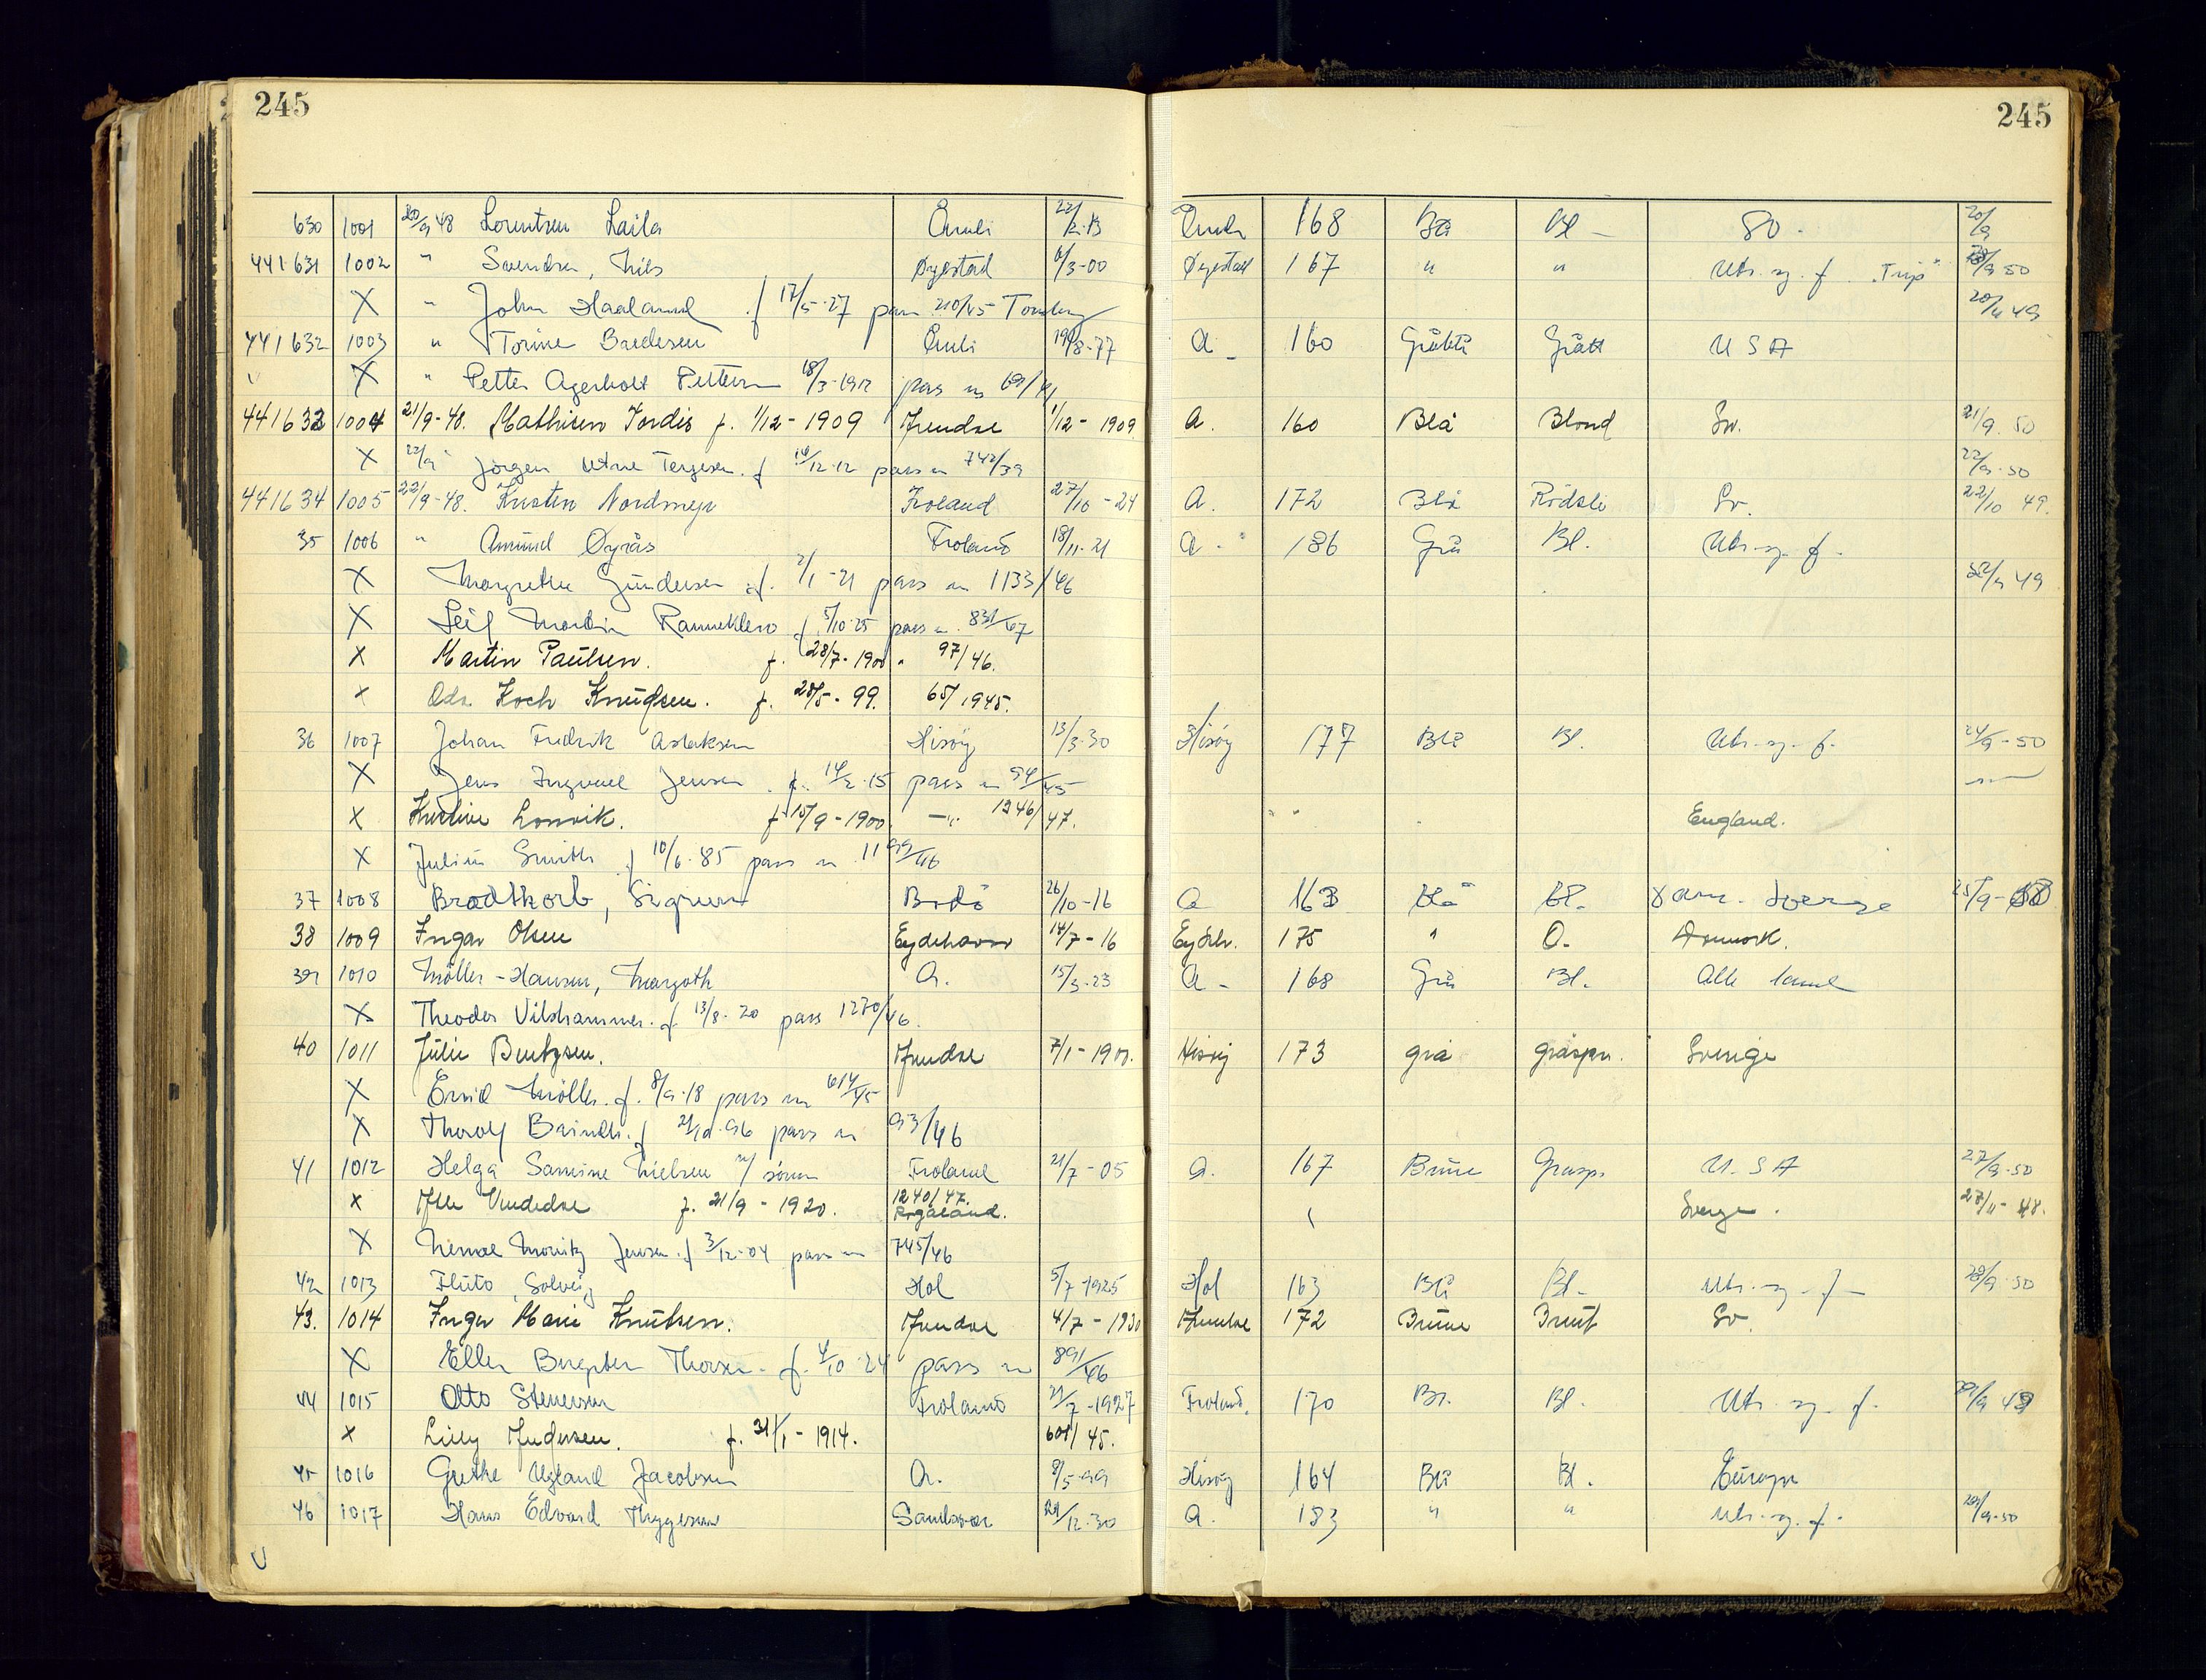 245 245
630 1001 20/9 48 Lorentzen Laila Åmli 22/ Åmli 168 Blå Bl - Sv. 20/9
441631 1002 " Svendsen, Nils Øyestad 6/3-00 Øyestad 167 " " Utr. og. f. "Trip" 9 50
X " John Haaland f 17/5-27 pass 210/45 20/ 49
441632 1003 " Torine Åmli 8-77 A - 160 Gråblå Grått U S A
X " Petter Agerholt 18/3-1912 pas n
441632 1004 21/9-48. Mathisen Jordis f. 1/12-1909 Arendal 1/12-1909 A. 160 Blå Blond Sv. 21/9. 50
X 22/9 Jørgen Arne Terjesen. f 12-12 pass n 742/39 22/9-50
441634 1005 22/9-48. Kristen Froland 27/10-24 A. 172 Blå Rødbl. Sv. 22/10 49.
35 1006 " Amund Øyrås Froland 18/11-21 A. 186 Grå Bl. Utr. og. f.
X Margrethe Gundersen f. 2/1-21 pass n 1133/46 49
X Leif Martin Ramnekleiv f 5/10-25 pass n. 831/47
X Martin Paulsen. f. 28/7-1900 " 97/46.
X Oda Koch Knudsen. f. 28/5-99. 65/1945.
36 1007 Johan Fredrik Aslaksen Hisøy 13/3-30 Hisøy 177 Blå Bl. Utr. og. f. 24/9-50
X Jens Ingvael Jensen f. 14/2-15 pass n 94/45
X Kristine Lossvik. f 15/9-1900. -"- 1246/47. England.
X Julius Smith f 10/6-85 pass n 1199/46
37 1008 Bradtkorb, Sigrun Bodø 26/10-16 A 163 Blå Bl. Dan. Sverige 25/9-50
38 1009 Ingar Olsen Eydehavn 14/7-16 Eydeh. 175 " O. Danmark.
39 1010 Møller-Hansen, Margoth A. 15/3-23 A - 168 Grå Bl. Alle land
X Theodor Vilshammer. f 13/8-20 pass 1270/46.
40 1011 Julie Bentzen. Arendal 7/1-1900. Hisøy 173 grå gråspr. Sverige
X Møller. f. 8/9-18 pass n 614/45
X Thorolf f pass n 93/46
41 1012 Helga Samine Nielsen m/ sønn Froland 21/7-05 A. 167 Brune Gråsp. U.S A 27/9-50
X f. 21/9-1920. 1240/47. Rogaland. Sverige. 27/11-48.
X Moritz Jensen. f 3/12-04 pass n 745/46
42 1013 Fluto, Solveig Hol 5/7-1925 Hol 163 Blå Bl - Utr. og. f - 9-50
43. 1014 Inger Marie Knutsen. Arendal 4/7-1930 Arendal 172 Brune Brunt Sv.
X Ellen Thorsen. f. 4/10-24 pass n 891/46
44 1015 Otto Stenersen Froland 7-1927 Froland. 170 Bl. Bl. Utr. og. f. 9 49
X Lilly Andersen. f. 31/1-1914. 601/45.
45 1016 Grethe Ugland Jacobsen A. 8/5-99 Hisøy 164 Blå Bl. Europa
46 1017 Hans Edvard Thygesen Sandøer 12-30 A. 183 " " Utr. og. f. 9-50